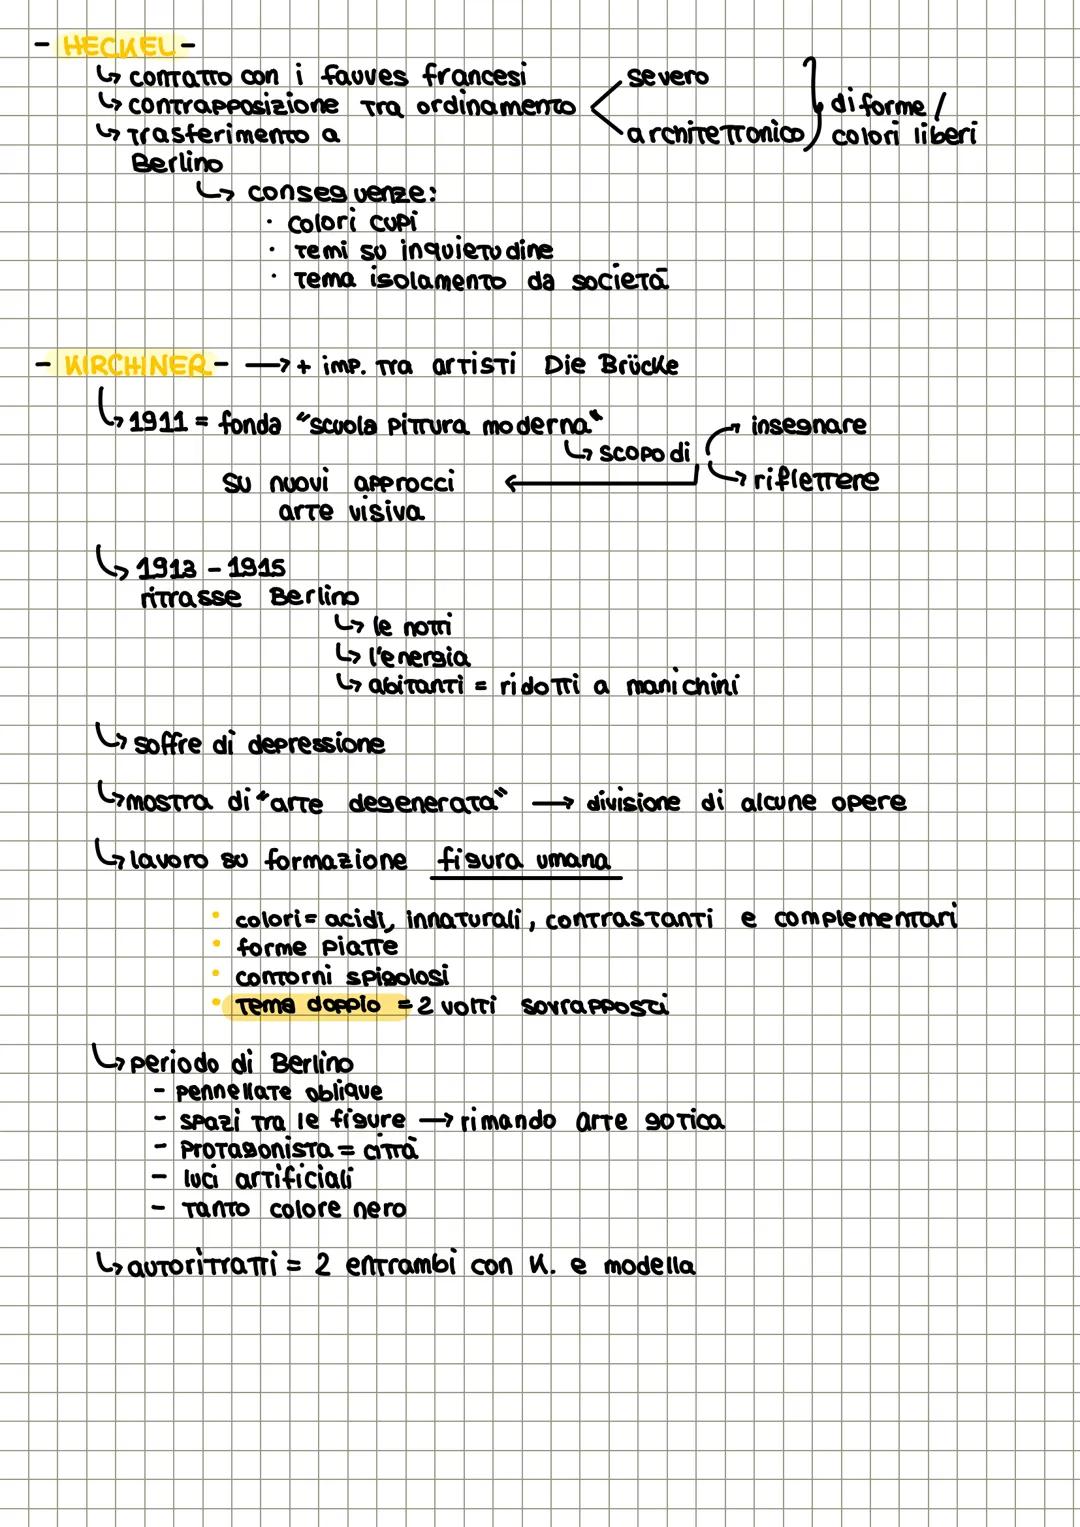 - HECKEL -
↳ contatto con i fauves francesi
↳ contrapposizione tra ordinamento < severo
architettonico } di forme /
colori liberi
↳ trasferimento a
Berlino
↳ conseguenze:
· colori cupi
· temi su inquietudine
· tema isolamento da società
- KIRCHINER - → + imp. tra artisti Die Brücke
↳ 1911 = fonda "scuola pittura moderna"
↳ scopo di
insegnare
riflettere
su nuovi approcci
arte visiva
↳ 1913 - 1915
ritrasse Berlino
↳ le notti
↳ l'energia
↳ abitanti = ridotti a manichini
↳ soffre di depressione
↳ mostra di "arte degenerata" → divisione di alcune opere
↳ lavoro su formazione figura umana
• colori = acidi, innaturali, contrastanti e complementari
• forme piatte
• contorni spigolosi
• tema doppio = 2 volti sovrapposti
↳ periodo di Berlino
- pennellate oblique
- spazi tra le figure → rimando arte gotica
- protagonista = città
- luci artificiali
- tanto colore nero
↳ autoritratti = 2 entrambi con K. e modella